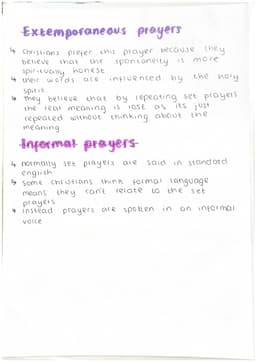 Extemporaneous prayers
↳ christians prefer this prayer because they
believe that the spontaneity is more
spiritually honest
↳ their words are influenced by the holy
spirit
↳ They believe that by repeating set prayers
the real meaning is lost as its just
repeated without thinking about the
meaning
Informal prayers
↳ normally set prayers are said in standard
english
↳ some christians think formal language
means they can't relate to the set
prayers
↳ instead prayers are spoken in an informal
voice